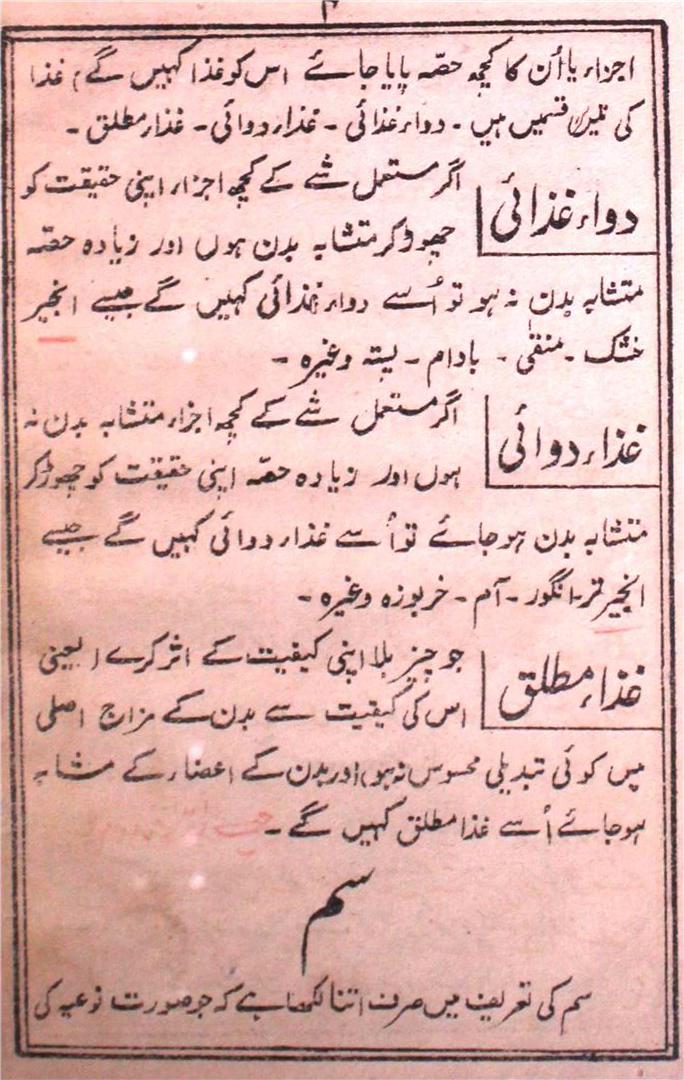 ۴
اجزاء یا اُن کا کچھ حصّہ پایا جائے اس کو غذا کہیں گے، غذا
کی تین قسمیں ہیں ۔ دواء غذائی ۔ غذاء دوائی ۔ غذاء مطلق ۔
دواء غذائی
اگر مستعمل شے کے کچھ اجزاء اپنی حقیقت کو
چھوڑ کر متشابہ بدن ہوں اور زیادہ حصّہ
متشابہ بدن نہ ہو تو اُسے دواء غذائی کہیں گے جیسے انجیر
خشک ۔ منقیٰ ۔ بادام ۔ پستہ وغیرہ ۔
غذاء دوائی
اگر مستعمل شے کے کچھ اجزاء متشابہ بدن نہ
ہوں اور زیادہ حصّہ اپنی حقیقت کو چھوڑ کر
متشابہ بدن ہو جائے تو اُسے غذاء دوائی کہیں گے جیسے
انجیر تر ۔ انگور ۔ آم ۔ خربوزہ وغیرہ ۔
غذاء مطلق
جو چیز بلا اپنی کیفیت کے اثر کرے (یعنی
اس کی کیفیت سے بدن کے مزاج اصلی
میں کوئی تبدیلی محسوس نہ ہو) اور بدن کے اعضاء کے مشابہ
ہو جائے اُسے غذا مطلق کہیں گے ۔
سم
سم کی تعریف میں صرف اتنا لکھا ہے کہ جو صورت نوعیہ کی